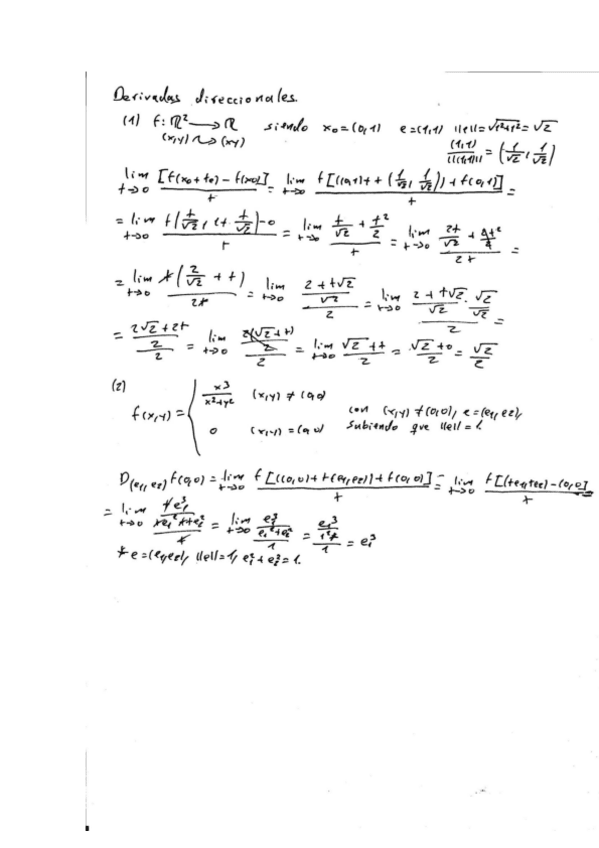 Derivadas direccionales.
(1) f: ℝ² → ℝ siendo x₀=(0,1) e=(1,1) ||e||=√(1²+1²)=√2
(x,y) ⇝ (xy) (1,1)/||(1,1)|| = (1/√2, 1/√2)
lim t→0 [f(x₀+te)-f(x₀)]/t = lim t→0 f[((0,1)+t(1/√2, 1/√2))+f(0,1)]/t =
= lim t→0 f(t/√2, 1+t/√2)-0 / t = lim t→0 (t/√2 + t²/2)/t = lim t→0 (2t/√2 + 2t²/2)/2t =
= lim t→0 t(2/√2 + t)/2t = lim t→0 ((2+t√2)/√2)/2 = lim t→0 ((2+t√2)/√2 · √2/√2)/2 =
= ((2√2+2t)/2)/2 = lim t→0 (2(√2+t)/2)/2 = lim t→0 (√2+t)/2 = (√2+0)/2 = √2/2
(2)
f(x,y) = { x³/(x²+y²) (x,y)≠(0,0)
con (x,y)≠(0,0), e=(e₁,e₂),
0 (x,y)=(0,0) sabiendo que ||e||=1.
D(e₁,e₂)f(0,0) = lim t→0 f[((0,0)+t(e₁,e₂))+f(0,0)]/t = lim t→0 f[(te₁,te₂)-(0,0)]/t
= lim t→0 (te₁³/(e₁²+e₂²))/t = lim t→0 (e₁³/(e₁²+e₂²))/1 = (e₁³/1²*)/1 = e₁³
* e=(e₁,e₂), ||e||=1, e₁²+e₂²=1.